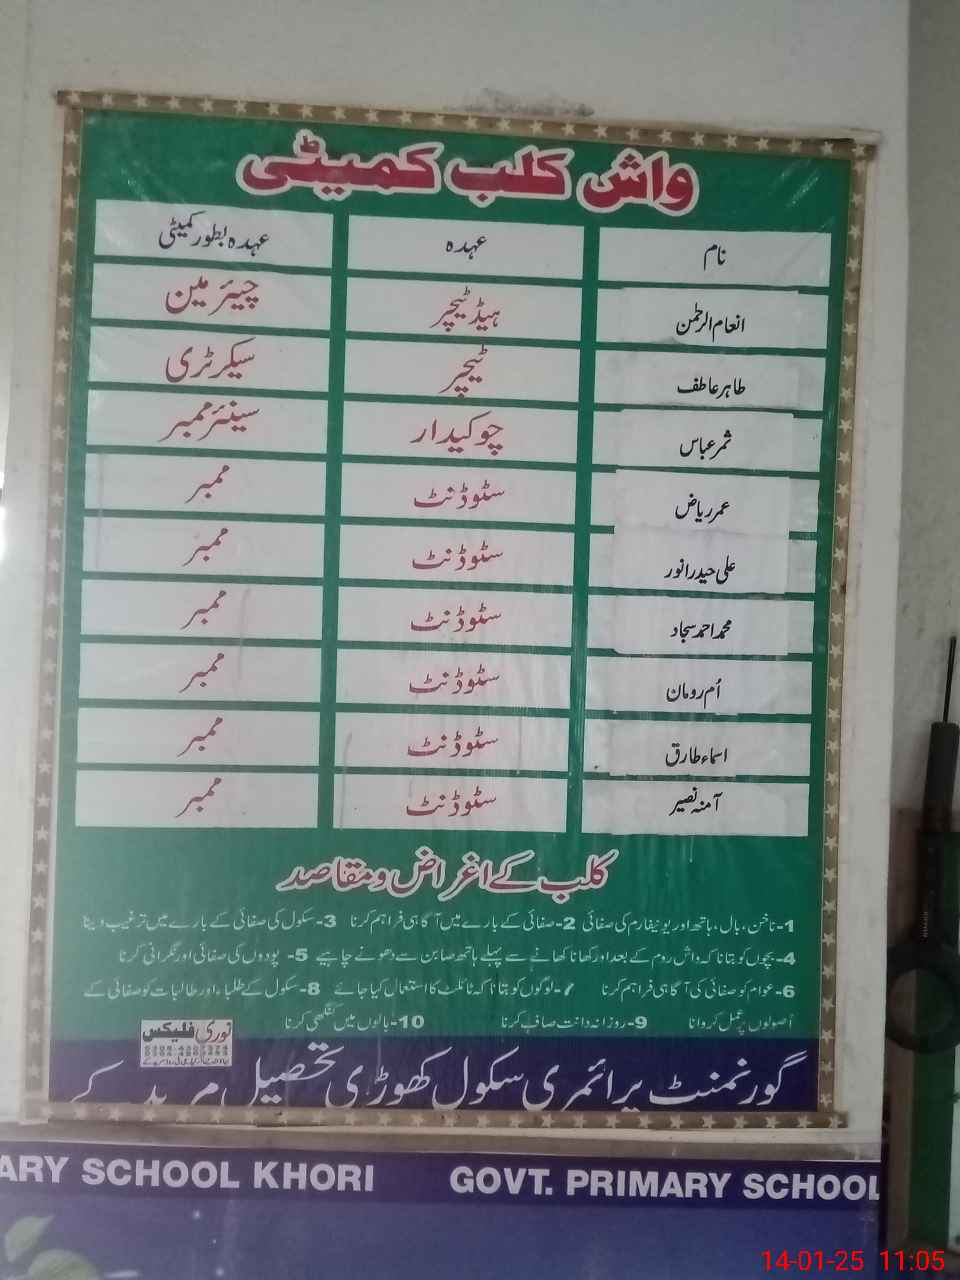 واش کلب کمیٹی
نام عہدہ عہدہ بطور کمیٹی
انعام الرحمٰن ہیڈ ٹیچر چیئرمین
طاہر عاطف ٹیچر سیکرٹری
ثمر عباس چوکیدار سینئر ممبر
عمر ریاض سٹوڈنٹ ممبر
علی حیدر انور سٹوڈنٹ ممبر
محمد احمد سجاد سٹوڈنٹ ممبر
اُم رومان سٹوڈنٹ ممبر
اسماء طارق سٹوڈنٹ ممبر
آمنہ نصیر سٹوڈنٹ ممبر
کلب کے اغراض و مقاصد
1- ناخن، بال، ہاتھ اور یونیفارم کی صفائی 2- صفائی کے بارے میں آگاہی فراہم کرنا 3- سکول کی صفائی کے بارے میں ترغیب دینا
4- بچوں کو بتانا کہ واش روم کے بعد اور کھانا کھانے سے پہلے ہاتھ صابن سے دھونے چاہیے 5- پودوں کی صفائی اور نگرانی کرنا
6- عوام کو صفائی کی آگاہی فراہم کرنا 7- لوگوں کو بتانا کہ ٹائلٹ کا استعمال کیا جائے 8- سکول کے طلباء اور طالبات کو صفائی کے
اُصولوں پر عمل کروانا 9- روزانہ دانت صاف کرنا 10- بالوں میں کنگھی کرنا
نوری فلیکس
گورنمنٹ پرائمری سکول کھوڑی تحصیل مریدکے
ARY SCHOOL KHORI GOVT. PRIMARY SCHOOL
14-01-25 11:05